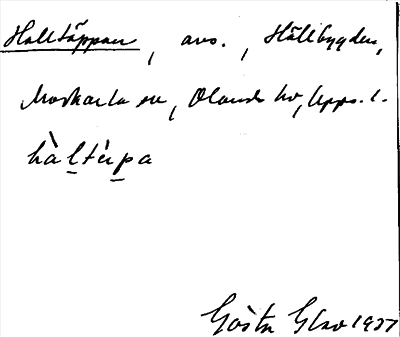 Halltäppan, avs., Hållbygden,
Morkarla sn, Olands hd, Upps. l.
hàltɛ̀pa
Gösta Glav 1937